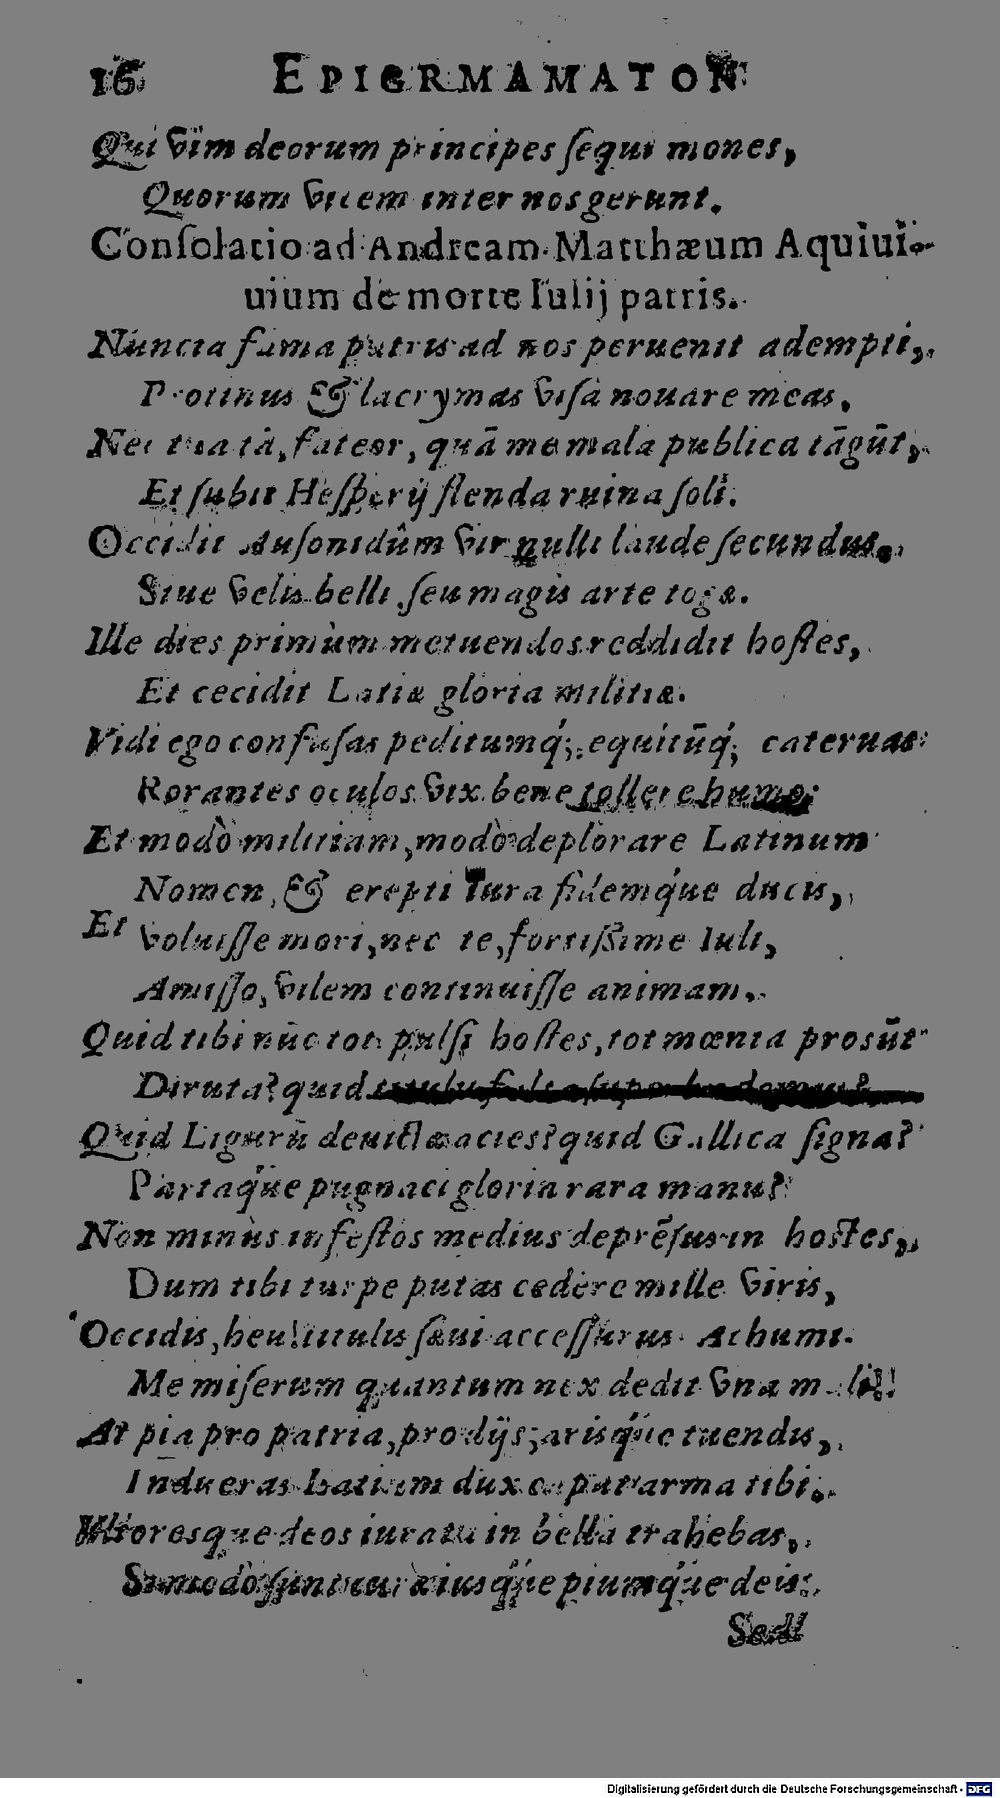 16 EPIGRMAMATON
Qui vim deorum principes sequi mones,
Quorum vicem inter nos gerunt.
Consolatio ad Andream Matthæum Aquiui-
uium de morte Iulij patris.
Nuncia fama patris ad nos peruenit adempti,
Protinus & lacrymas visa nouare meas.
Nec tua tā, fateor, quā me mala publica tāgūt,
Et subit Hesperij flenda ruina soli.
Occidit Ausonidûm vir nulli laude secundus,
Siue velis belli seu magis arte togæ.
Ille dies primùm metuendos reddidit hostes,
Et cecidit Latiæ gloria militiæ.
Vidi ego confusas peditumq́; equitūq́; cateruas
Rorantes oculos vix bene tollere humo:
Et modò militiam, modò deplorare Latinum
Nomen, & erepti iura fidemq́ue ducis,
Et voluisse mori, nec te, fortissime Iuli,
Amisso, vilem continuisse animam.
Quid tibi nūc tot pulsi hostes, tot mœnia prosūt
Diruta? quid
Quid Ligurū deuictæ acies? quid Gallica signa?
Partaq́ue pugnaci gloria rara manu?
Non minùs infestos medius deprēsus in hostes,
Dum tibi turpe putas cedere mille viris,
Occidis, heu! titulis sæui accessurus Achumi.
Me miserum quantum nox dedit vna mali!
At pia pro patria, pro dijs, arisq́ue tuendis,
Indueras Latium dux caput arma tibi.
Vltoresque deos iurata in bella trahebas,
Si modò sunt curæ iusq́ue piumq́ue deis.
Sed